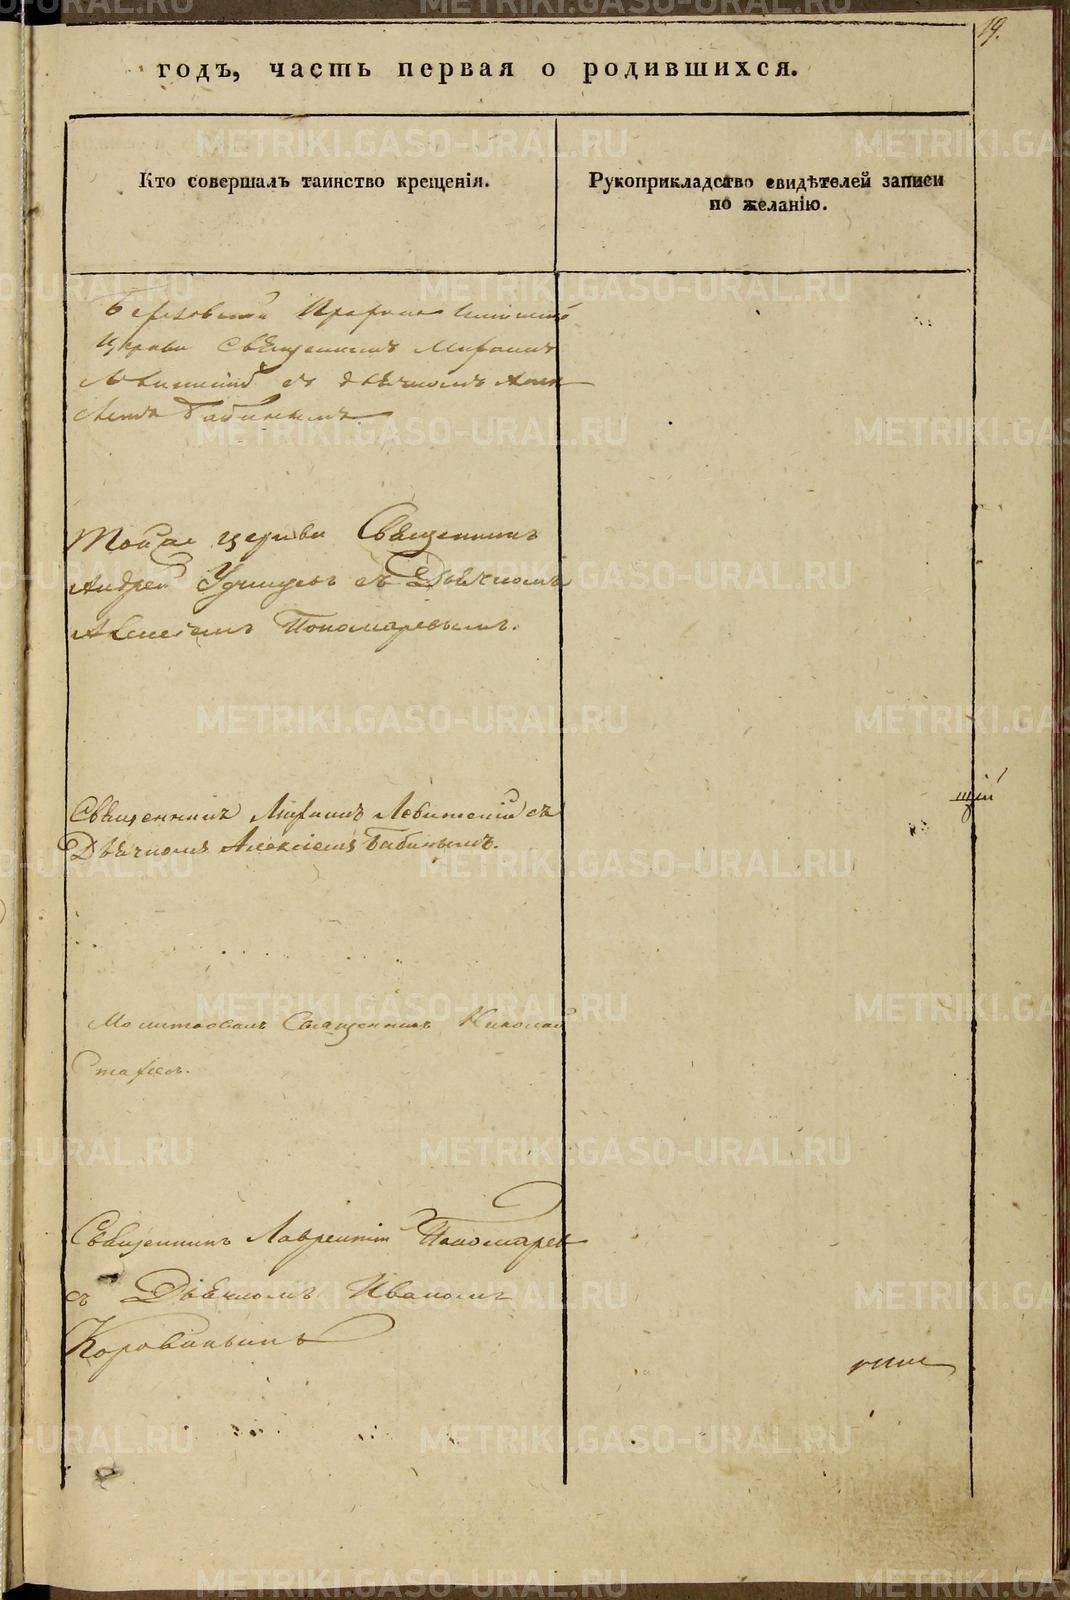 19.
годъ, часть первая о родившихся.
Кто совершалъ таинство крещенія.
Рукоприкладство свидѣтелей записи
по желанію.
Церкви Священникъ Миронъ
Левитскій съ Дьячкомъ Алек
сѣемъ Бабинымъ.
Той же церкви Священникъ
Андрей Удинцовъ съ Дьячкомъ
Алексіемъ Пономаревымъ.
Священникъ Миронъ Левитскій съ
Дьячкомъ Алексіемъ Бабинымъ.
щій
Молитвовалъ Священникъ Николай
Священникъ Лаврентій Пономарев
съ Дьячкомъ Иваномъ
Коровинымъ
METRIKI.GASO-URAL.RU